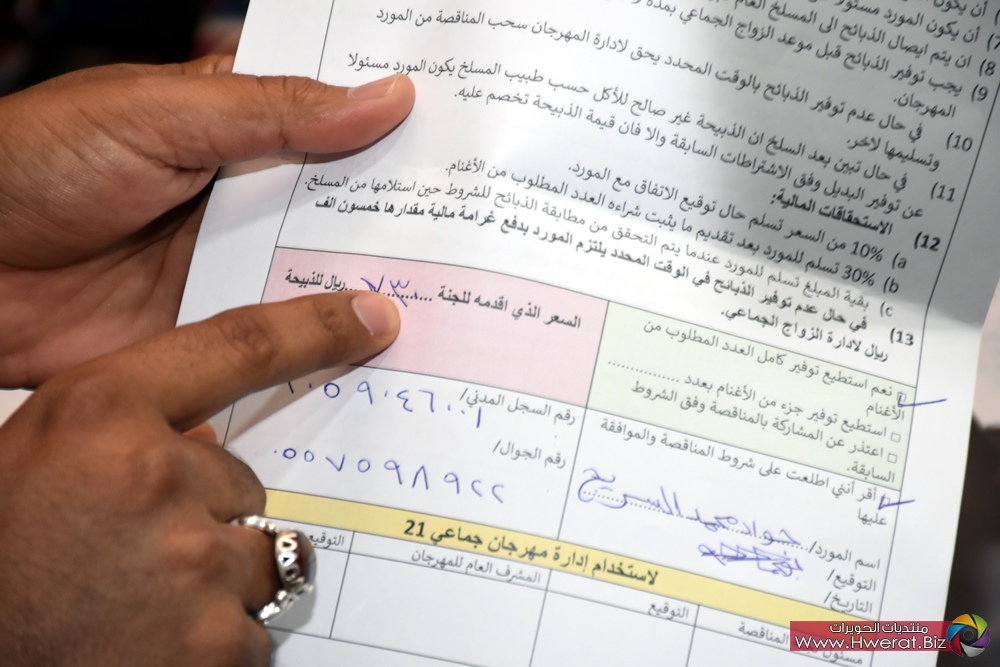 أن يكون المورد مسئولا
8) ان يتم ايصال الذبائح الى المسلخ العام
9) يجب توفير الذبائح قبل موعد الزواج الجماعي بمدة
المهرجان.
10) في حال عدم توفير الذبائح بالوقت المحدد يحق لادارة المهرجان سحب المناقصة من المورد
وتسليمها لاخر.
11) في حال تبين بعد السلخ ان الذبيحة غير صالح للأكل حسب طبيب المسلخ يكون المورد مسئولا
عن توفير البديل وفق الاشتراطات السابقة والا فان قيمة الذبيحة تخصم عليه.
12) الاستحقاقات المالية:
a) 10% من السعر تسلم حال توقيع الاتفاق مع المورد.
b) 30% تسلم للمورد بعد تقديم ما يثبت شراءه العدد المطلوب من الأغنام.
c) بقية المبلغ تسلم للمورد عندما يتم التحقق من مطابقة الذبائح للشروط حين استلامها من المسلخ.
13) في حال عدم توفير الذبائح في الوقت المحدد يلتزم المورد بدفع غرامة مالية مقدارها خمسون الف
ريال لادارة الزواج الجماعي.
□ نعم استطيع توفير كامل العدد المطلوب من
الأغنام
□ استطيع توفير جزء من الأغنام بعدد ..............
□ اعتذر عن المشاركة بالمناقصة وفق الشروط
السابقة.
السعر الذي اقدمه للجنة ....٧٣٠....ريال للذبيحة
□ أقر أنني اطلعت على شروط المناقصة والموافقة
عليها
رقم السجل المدني/
١٠٥٩٠٤٦٠٠١
رقم الجوال/
٠٥٥٧٥٩٨٩٢٢
اسم المورد/ جواد محمد السريج
التوقيع/
التاريخ/
لاستخدام إدارة مهرجان جماعي 21
المناقصة
التوقيع
المشرف العام للمهرجان
التوقيع
مسئول
منتديات الحويرات
www.Hwerat.Biz